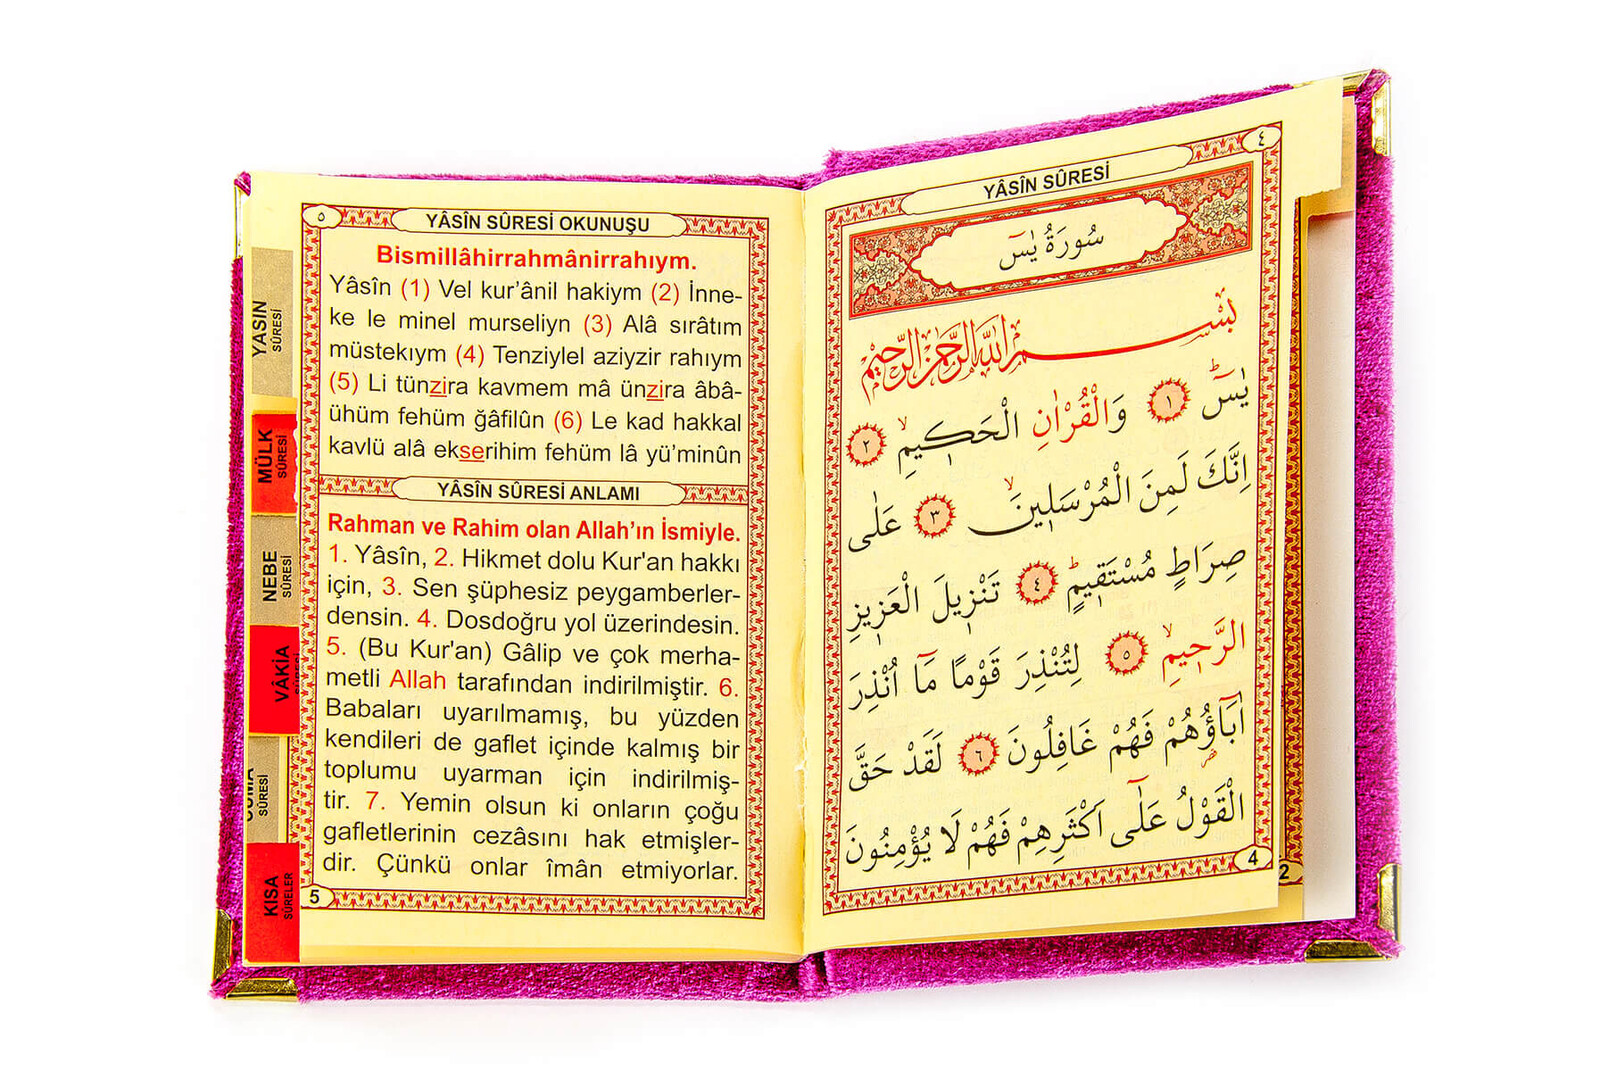 ٥
YÂSÎN SÛRESİ OKUNUŞU
Bismillâhirrahmânirrahıym.
Yâsîn (1) Vel kur’ânil hakiym (2) İnne-
ke le minel murseliyn (3) Alâ sırâtım
müstekıym (4) Tenziylel aziyzir rahıym
(5) Li tünzira kavmem mâ ünzira âbâ-
ühüm fehüm ğâfilûn (6) Le kad hakkal
kavlü alâ ekserihim fehüm lâ yü’minûn
YÂSÎN SÛRESİ ANLAMI
Rahman ve Rahim olan Allah’ın İsmiyle.
1. Yâsîn, 2. Hikmet dolu Kur'an hakkı
için, 3. Sen şüphesiz peygamberler-
densin. 4. Dosdoğru yol üzerindesin.
5. (Bu Kur'an) Gâlip ve çok merha-
metli Allah tarafından indirilmiştir. 6.
Babaları uyarılmamış, bu yüzden
kendileri de gaflet içinde kalmış bir
toplumu uyarman için indirilmiş-
tir. 7. Yemin olsun ki onların çoğu
gafletlerinin cezâsını hak etmişler-
dir. Çünkü onlar îmân etmiyorlar.
5
YASIN
SÛRESİ
MÜLK
SÛRESİ
NEBE
SÛRESİ
VÂKİA
SÛRESİ
KISA
SÛRELER
٤
YÂSÎN SÛRESİ
سُورَةُ يٰسٓ
بِسْمِ اللّٰهِ الرَّحْمٰنِ الرَّحِيمِ
يٰسٓ ۚ ﴿١﴾ وَالْقُرْاٰنِ الْحَكِيمِۙ ﴿٢﴾
اِنَّكَ لَمِنَ الْمُرْسَلِينَۙ ﴿٣﴾ عَلٰى
صِرَاطٍ مُسْتَقِيمٍۜ ﴿٤﴾ تَنْزِيلَ الْعَزِيزِ
الرَّحِيمِۙ ﴿٥﴾ لِتُنْذِرَ قَوْمًا مَٓا اُنْذِرَ
اٰبَٓاؤُ۬هُمْ فَهُمْ غَافِلُونَ ﴿٦﴾ لَقَدْ حَقَّ
الْقَوْلُ عَلٰٓى اَكْثَرِهِمْ فَهُمْ لَا يُؤْمِنُونَ
4
2